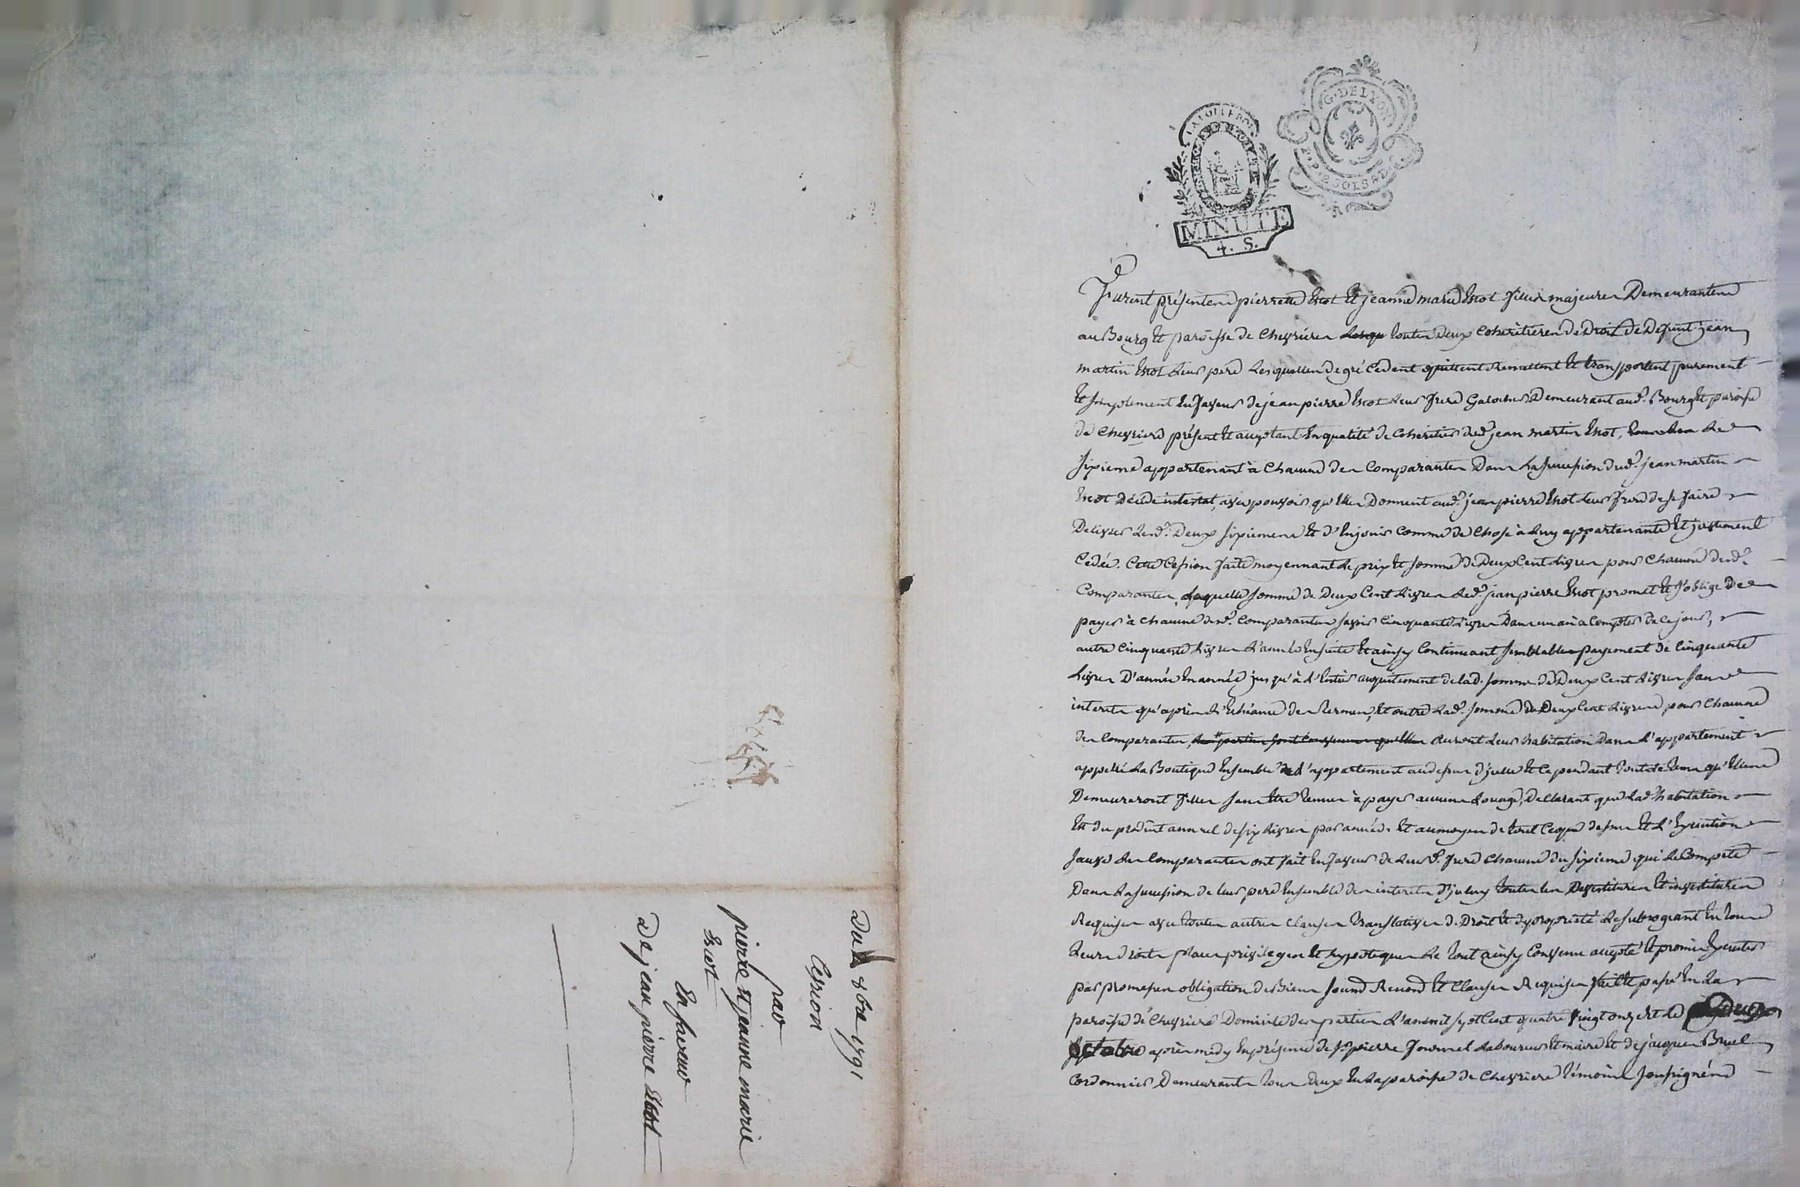 LA LOI LE ROI
MINUTE
4. S.
G. DE LYON
2 SOLS
Furent présentes pierrette Escot Et jeanne marie Escot filles majeures Demeurantes
au Bourg Et paroisse de Chevrieres toutes Deux Coheritieres de Droit de Defunt jean
martin Escot Leur pere Lesquelles de gré Cedent quittent Remettent Et transportent purement
Et simplement En faveur de jean pierre Escot Leur frere Garcon Demeurant aud. Bourg Et paroisse
de Chevrieres présent Et acceptant En qualité de Coheritier dud. jean martin Escot, Le
sixieme appartenant à Chacune des Comparantes Dans La succession dud. jean martin
Escot Décédé intestat, avec pouvoir qu'Elles Donnent aud. jean pierre Escot Leur frere de se faire
Delivrer Lesd. Deux sixiemes Et d'En jouir Comme de Chose à Luy appartenante Et justement
Cédée. Cette Cession faite moyennant Le prix Et somme de Deux Cent Livres pour Chacune desd.
Comparantes, Laquelle somme de Deux Cent Livres Led. jean pierre Escot promet Et s'oblige De
payer à chacune desd. Comparantes savoir Cinquante Livres Dans un an à Compter de Ce jour,
autre Cinquante Livres L'année Ensuite Et ainsy Continuant semblables payement de Cinquante
Livres D'année En année jusqu'à L'Entier acquittement de lad. somme de Deux Cent Livres sans
interets qu'après L'Echéance des Termes, Et outre Lad. somme de Deux Cent Livres pour Chacune
des Comparantes, Les parties sont Convenues qu'Elles auront Leur habitation Dans L'appartement
appellé La Boutique Ensemble L'appartement au dessus d'jcelle Et Cependant tout Le Tems qu'Elles
Demeureront filles sans Etre Tenues à payer aucun Louage, Déclarant que Lad. habitation
Est du produit annuel de six Livres par année. Et au moyen de tout Ceque dessus Et L'Execution
sauve Les Comparantes ont fait En faveur de Leurd. frere Chacune du sixieme qui Le Compete
Dans La succession de Leur pere Ensemble des interets d'jceluy toutes Les Devestitures Et investitures
Requises avec toutes autres Clauses Translatives de Droit Et de proprieté Le subrogeant En tous
Leurs droits places privileges Et hypotéques Le tout ainsy Convenu accepté Et promis Executer
par promesses obligation de biens soumd. Renond. Et Clauses Requises fait Et passé En La
paroisse de Chevrieres Domicile des parties L'an mil sept Cent quatre vingt onze Et Le
octobre après midy En présence de Sr. pierre Journel Laboureur Et maire Et de jacques Bruel
Cordonnier Demeurants tous deux En La paroisse de Chevrieres Témoins soussignés
Du 8bre 1791
Cession
par
pierre et jeanne marie
Escot
En faveur
De jean pierre Escot